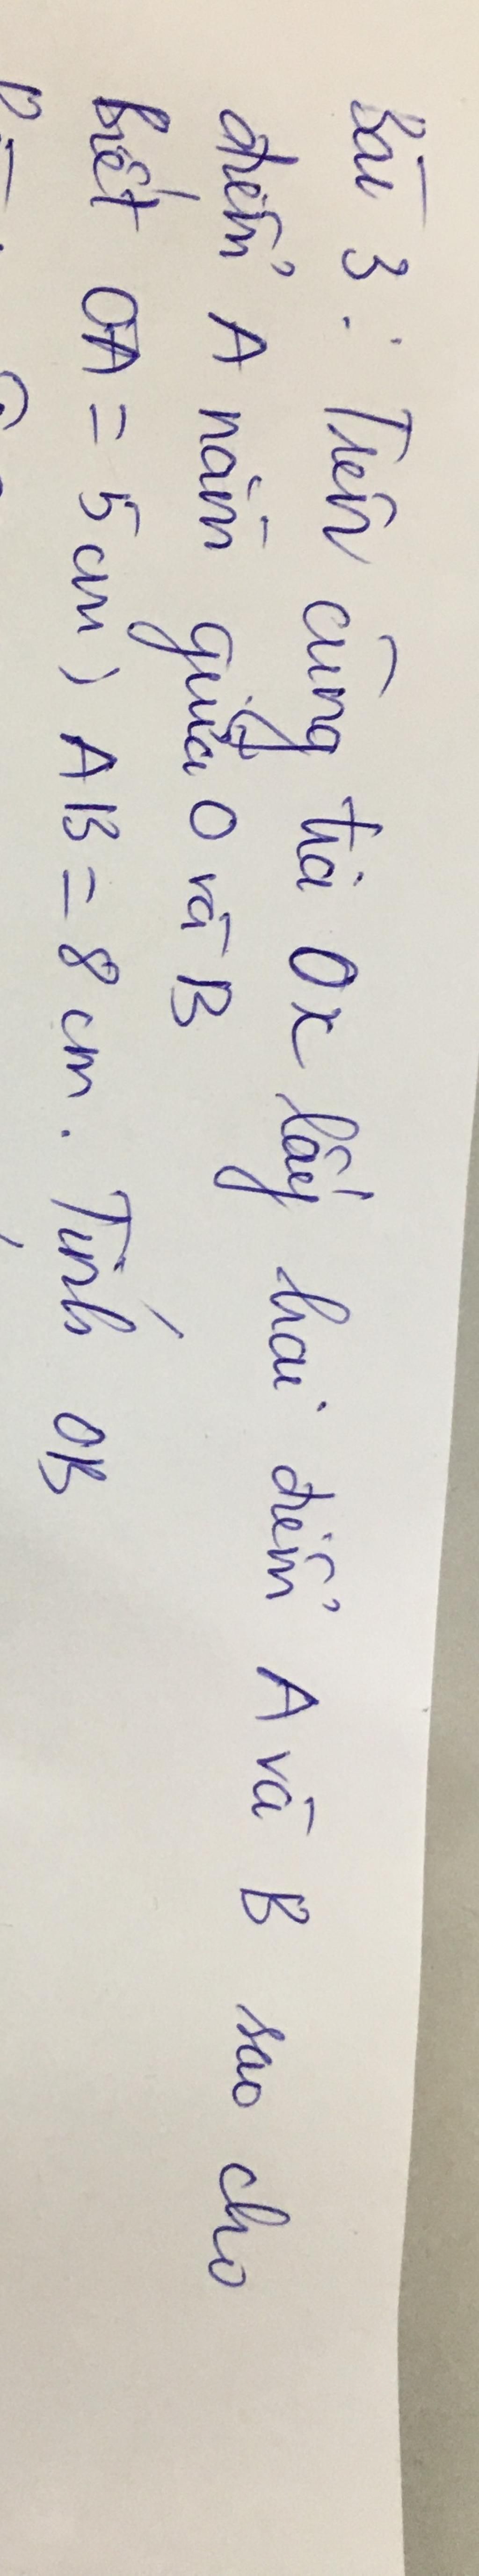 Bài 3: Trên cùng tia Ox lấy hai điểm A và B sao cho
điểm A nằm giữa O và B
biết OA = 5cm, AB = 8 cm. Tính OB